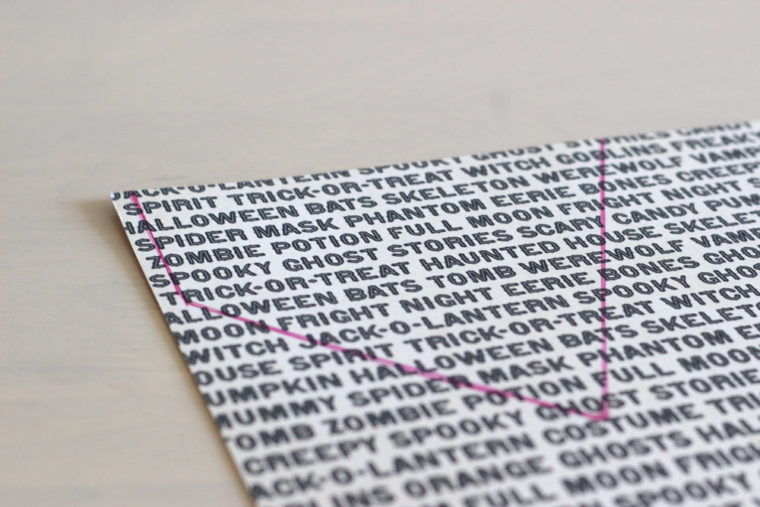 ACK-O-LANTERN SPOOKY GHOST
SPIRIT TRICK-OR-TREAT WITCH GOBLINS FREAK
HALLOWEEN BATS SKELETON WEREWOLF VAM
SPIDER MASK PHANTOM EERIE BONES CREE
ZOMBIE POTION FULL MOON FRIGHT NIGHT
SPOOKY GHOST STORIES SCARY CANDY PUM
TRICK-OR-TREAT HAUNTED HOUSE SKELET
ALLOWEEN BATS TOMB WEREWOLF VAMP
MOON FRIGHT NIGHT EERIE BONES GHO
WITCH JACK-O-LANTERN SPOOKY GHOS
OUSE SPIRIT TRICK-OR-TREAT WITCH
UMPKIN HALLOWEEN BATS SKELET
UMMY SPIDER MASK PHANTOM E
OMB ZOMBIE POTION FULL MOON
CREEPY SPOOKY GHOST STORIE
ACK-O-LANTERN COSTUME TRI
LINS ORANGE GHOSTS HAL
FULL MOON FRIGH
SPOOKY